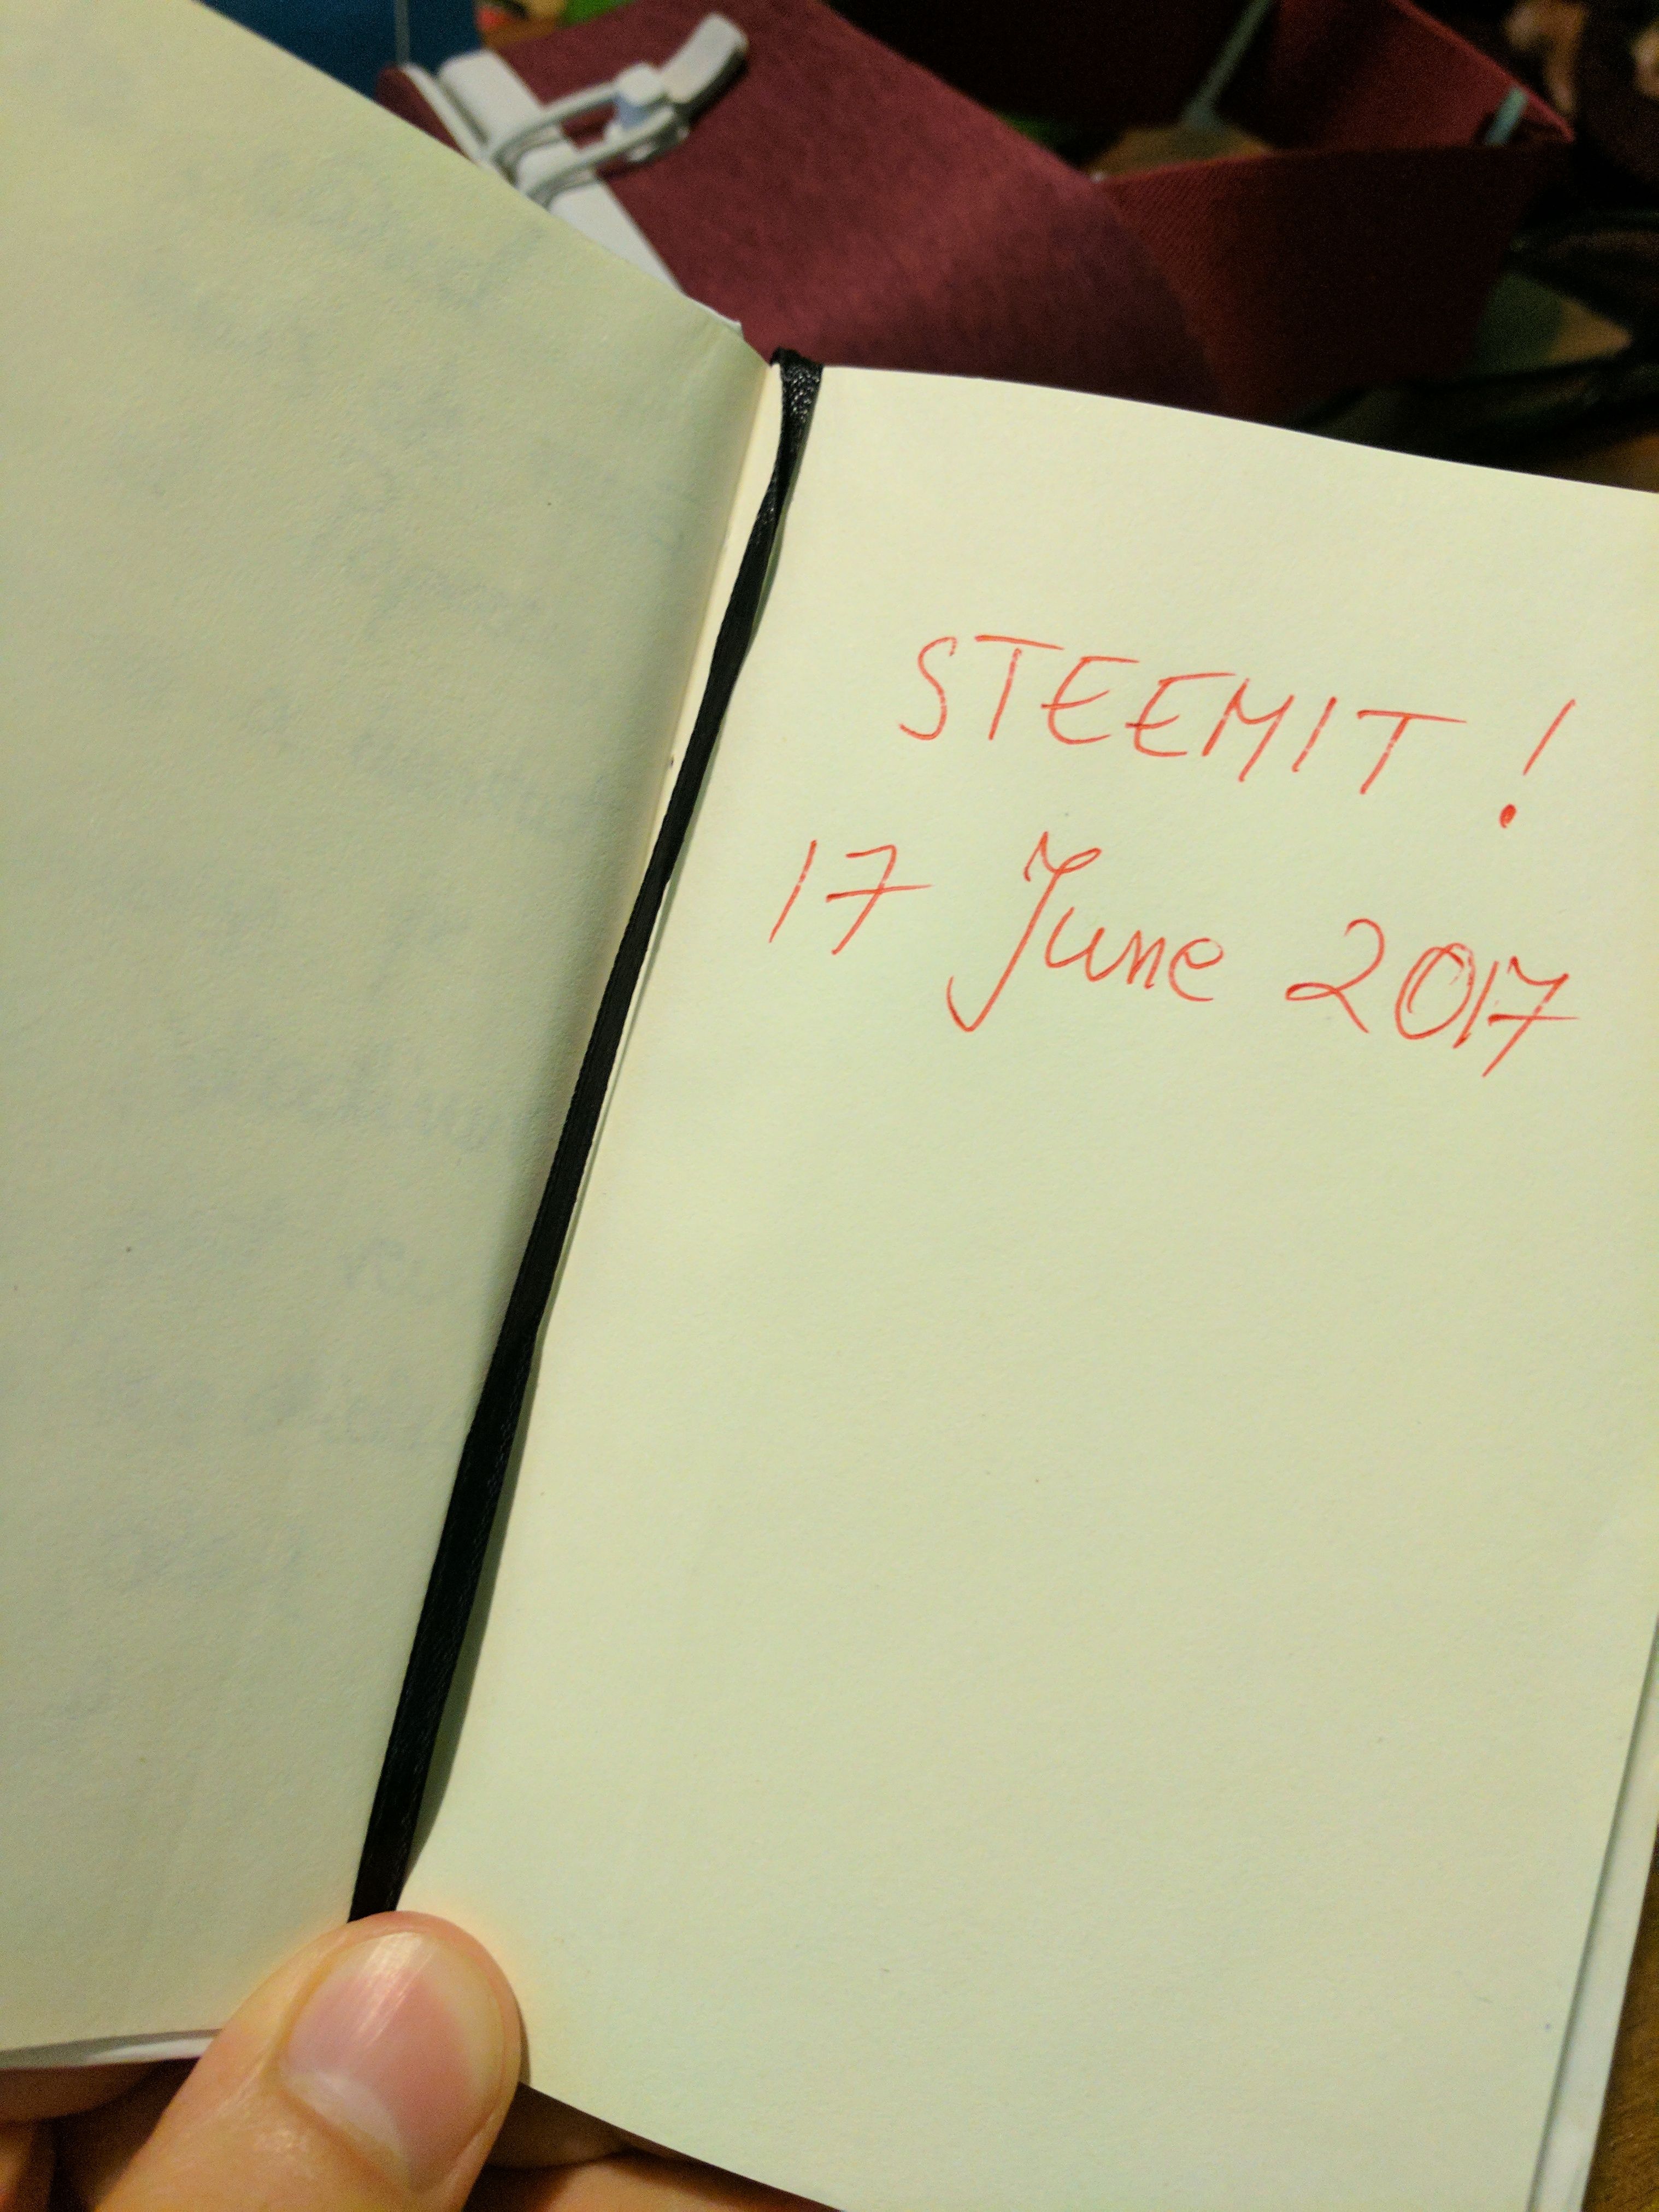 STEEMIT !
17 June 2017